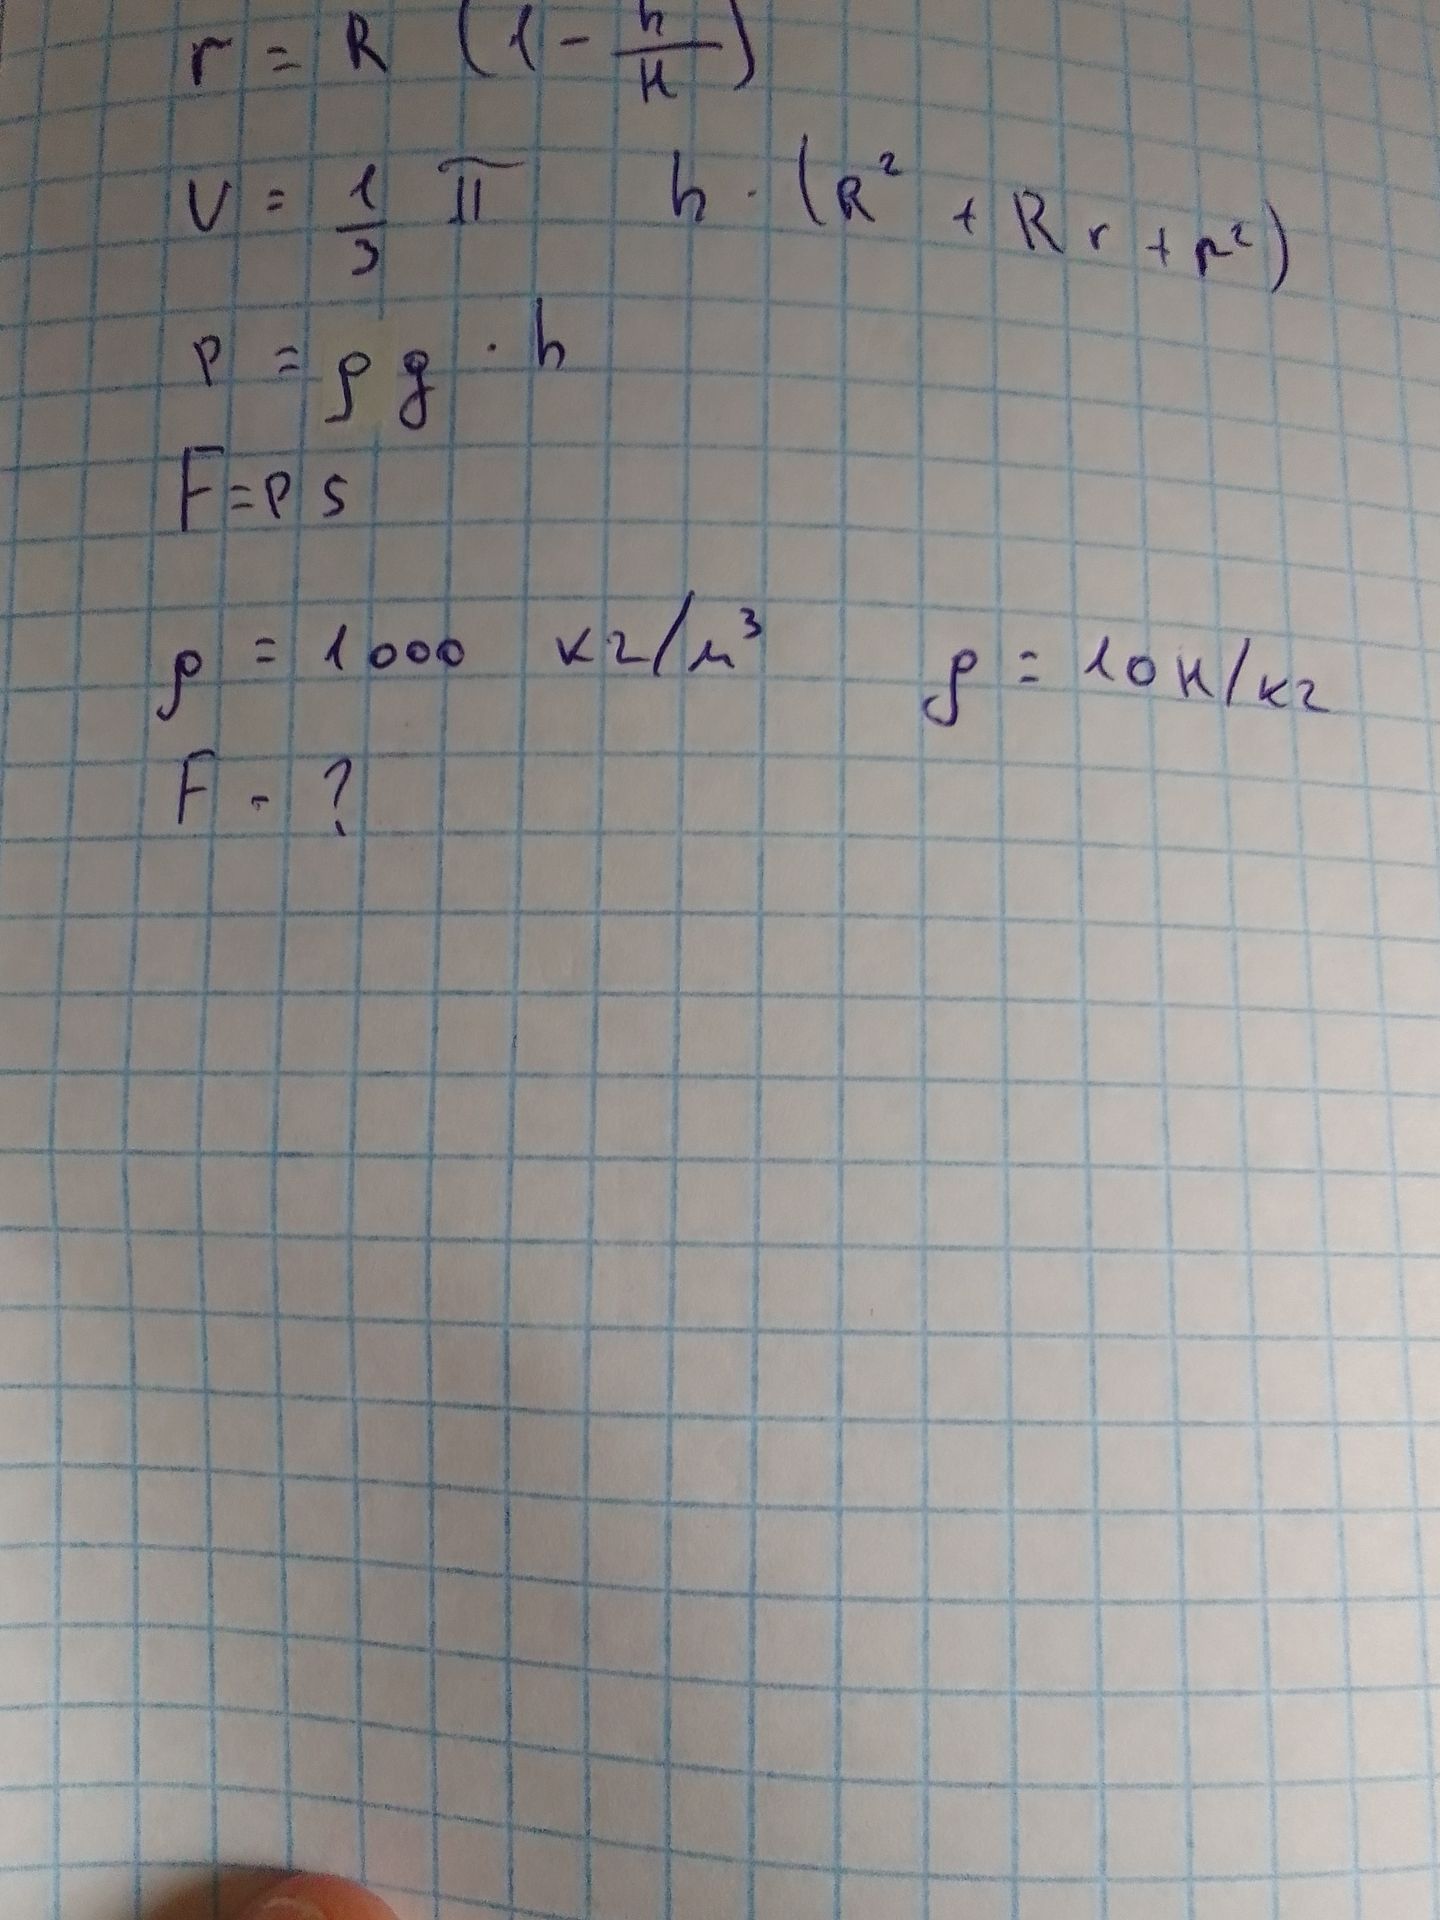 r = R (1 - h/H)
V = 1/3 π h · (R² + Rr + r²)
P = ρ g · h
F = P S
ρ = 1000 кг/м³ ρ = 10 Н/кг
F - ?